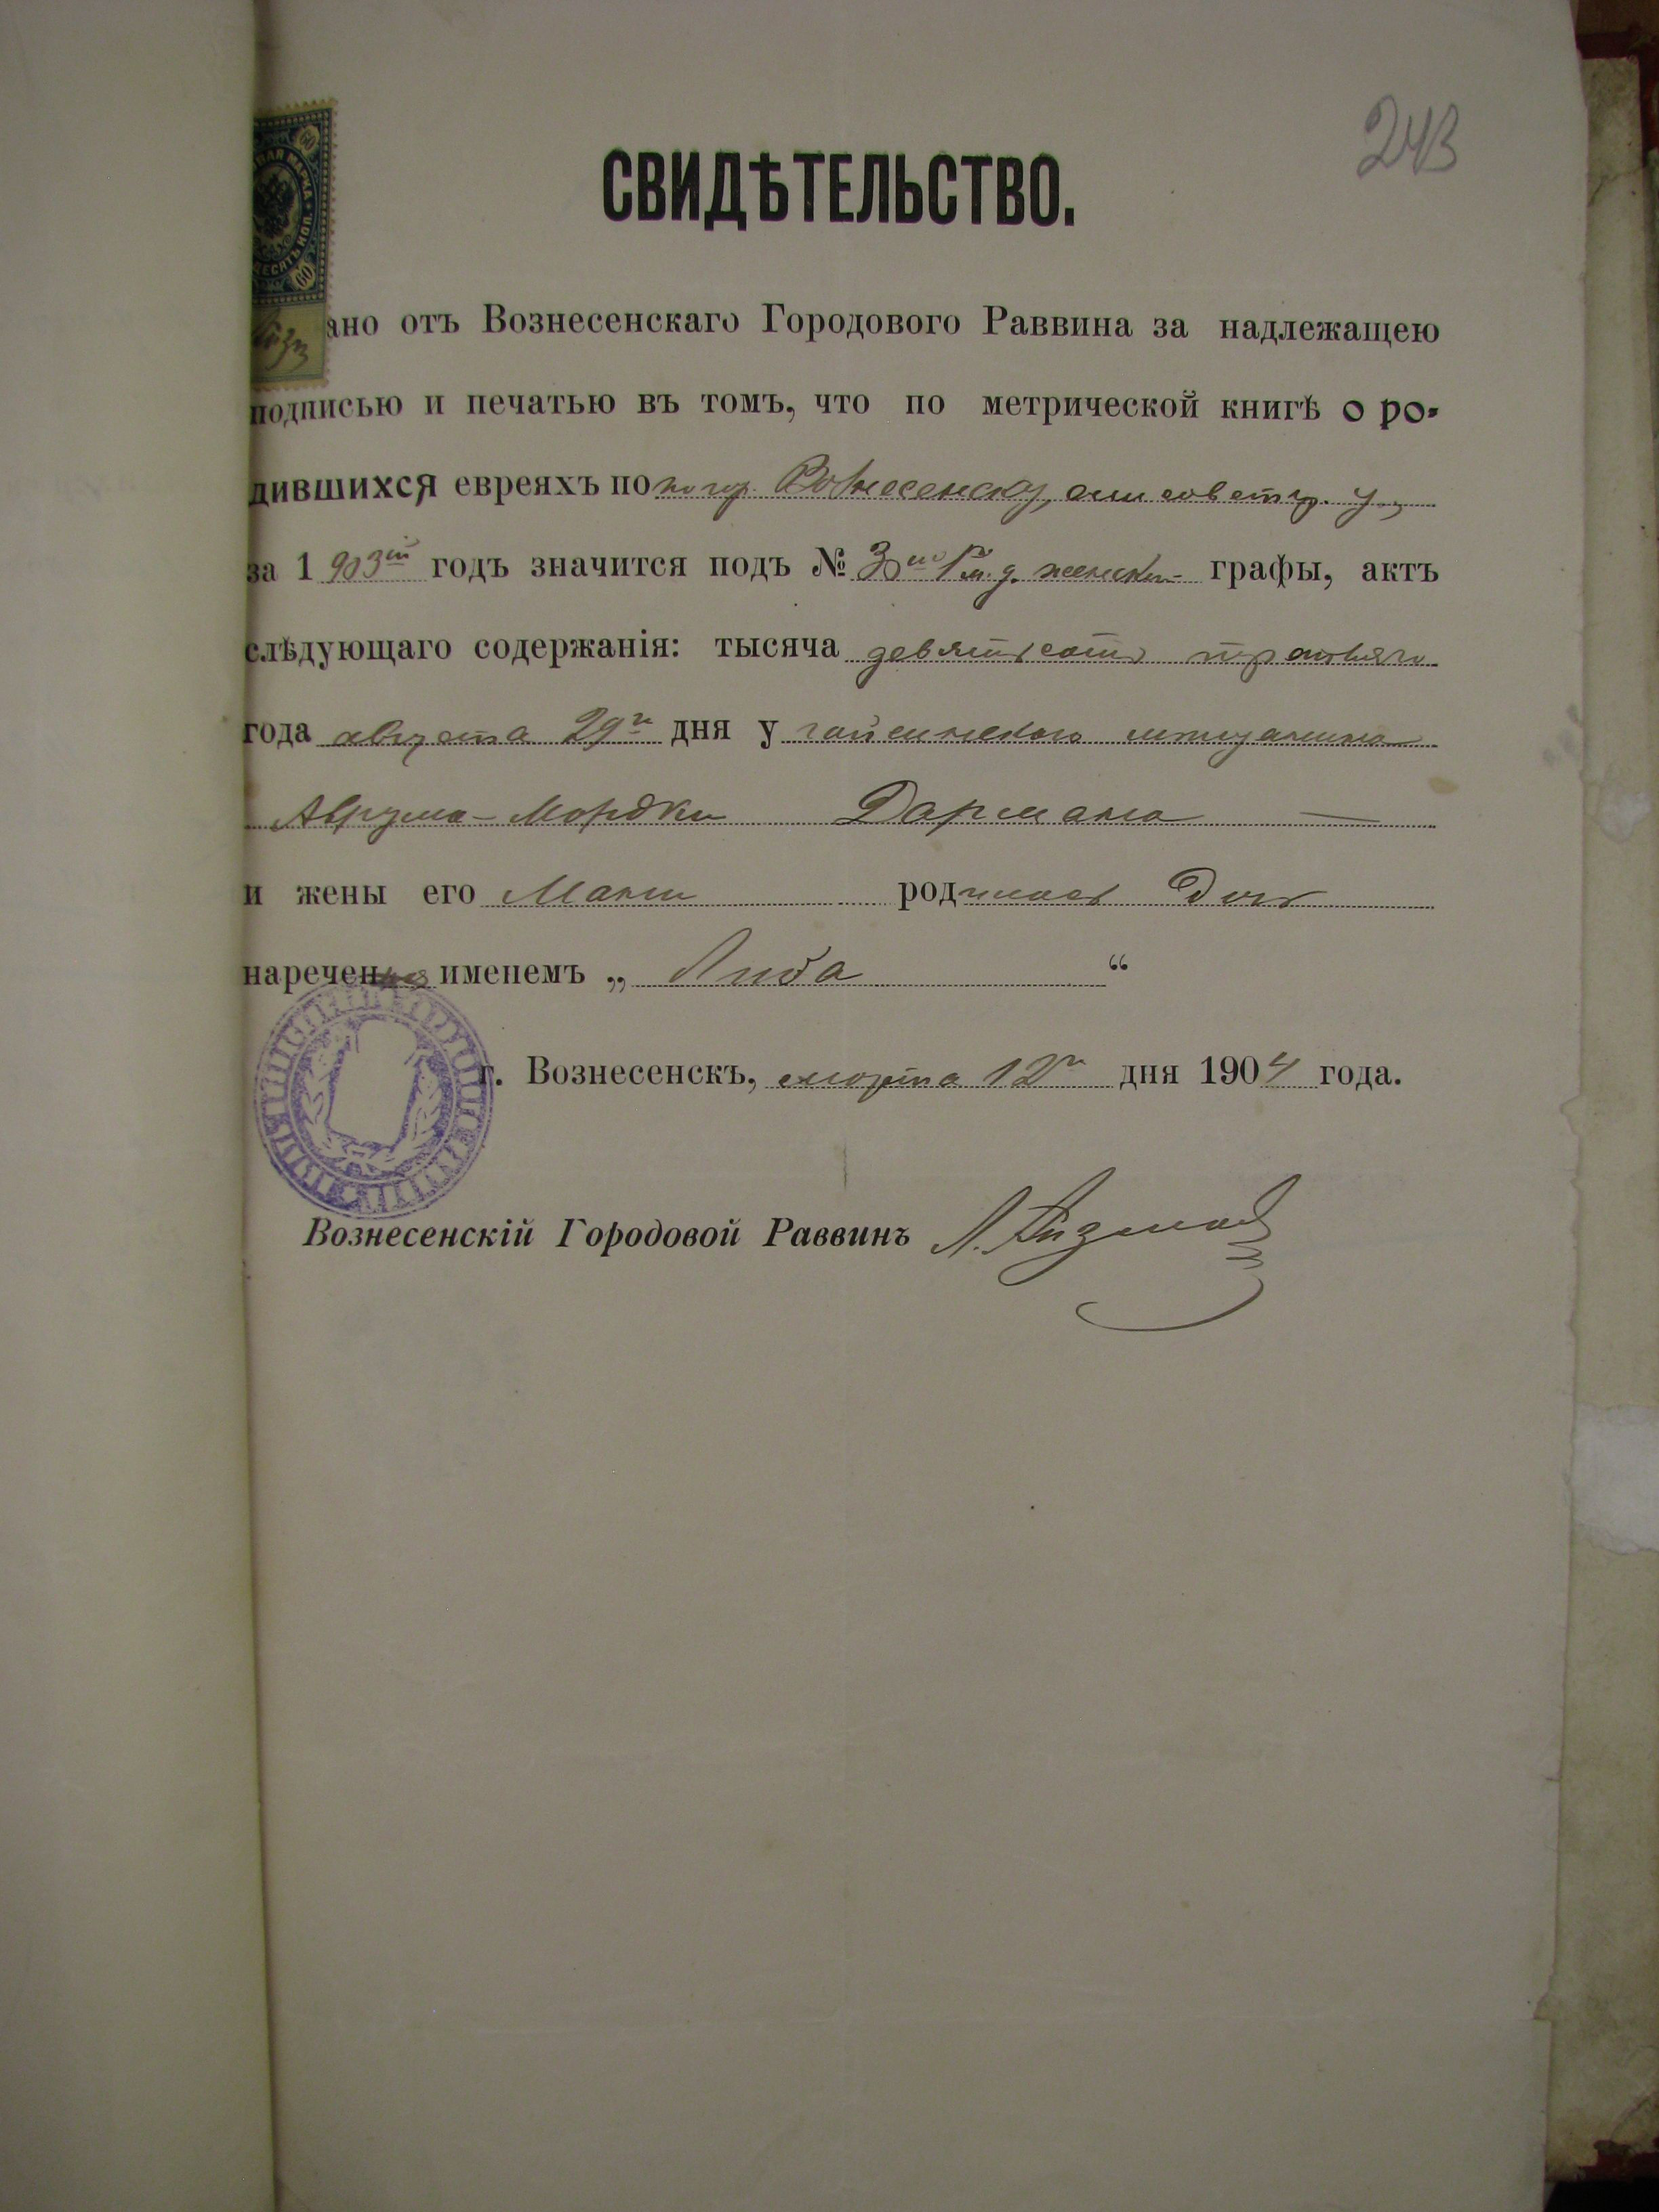 243
СВИДѢТЕЛЬСТВО.
ВАЯ МАРКА
ДЕСЯТЬ КОП.
60
60
ано отъ Вознесенскаго Городового Раввина за надлежащею
подписью и печатью въ томъ, что по метрической книгѣ о ро-
дившихся евреяхъ по по гор. Вознесенску, Елисаветгр. у.,
за 1903ій годъ значится подъ № женской графы, актъ
слѣдующаго содержанія: тысяча девятьсотъ третьяго
года августа 29го дня у гайсинскаго мѣщанина
Аврума-Мордки Дармана —
и жены его Мани родилась дочь
наречена именемъ „ Либа “
г. Вознесенскъ, марта 12го дня 1904 года.
Вознесенскій Городовой Раввинъ Л.